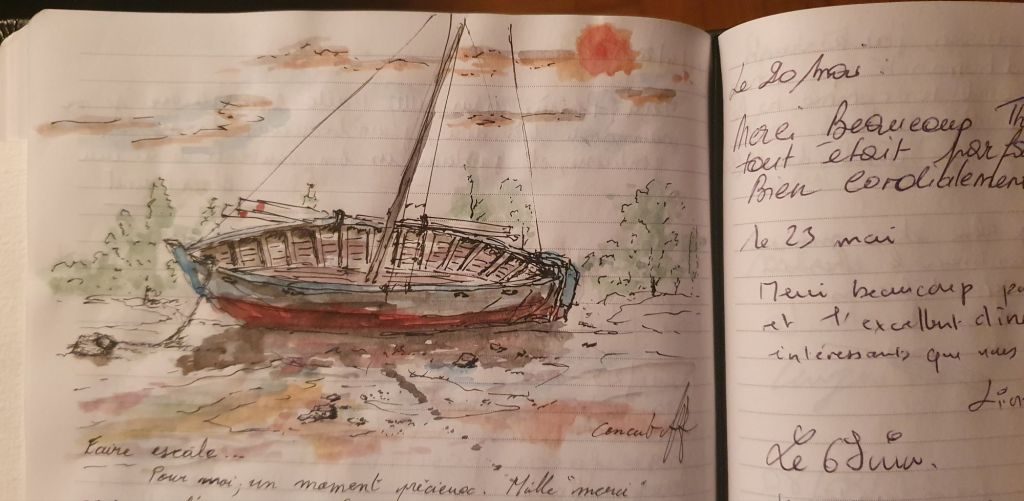 Faire escale...
Pour moi, un moment précieux. "Mille "merci"
Le 20/mai :
Merci Beaucoup
tout était
Bien Cordialement
le 23 mai
Merci beaucoup
et l'excellent
intéressants que nous
Le 6 Juin.